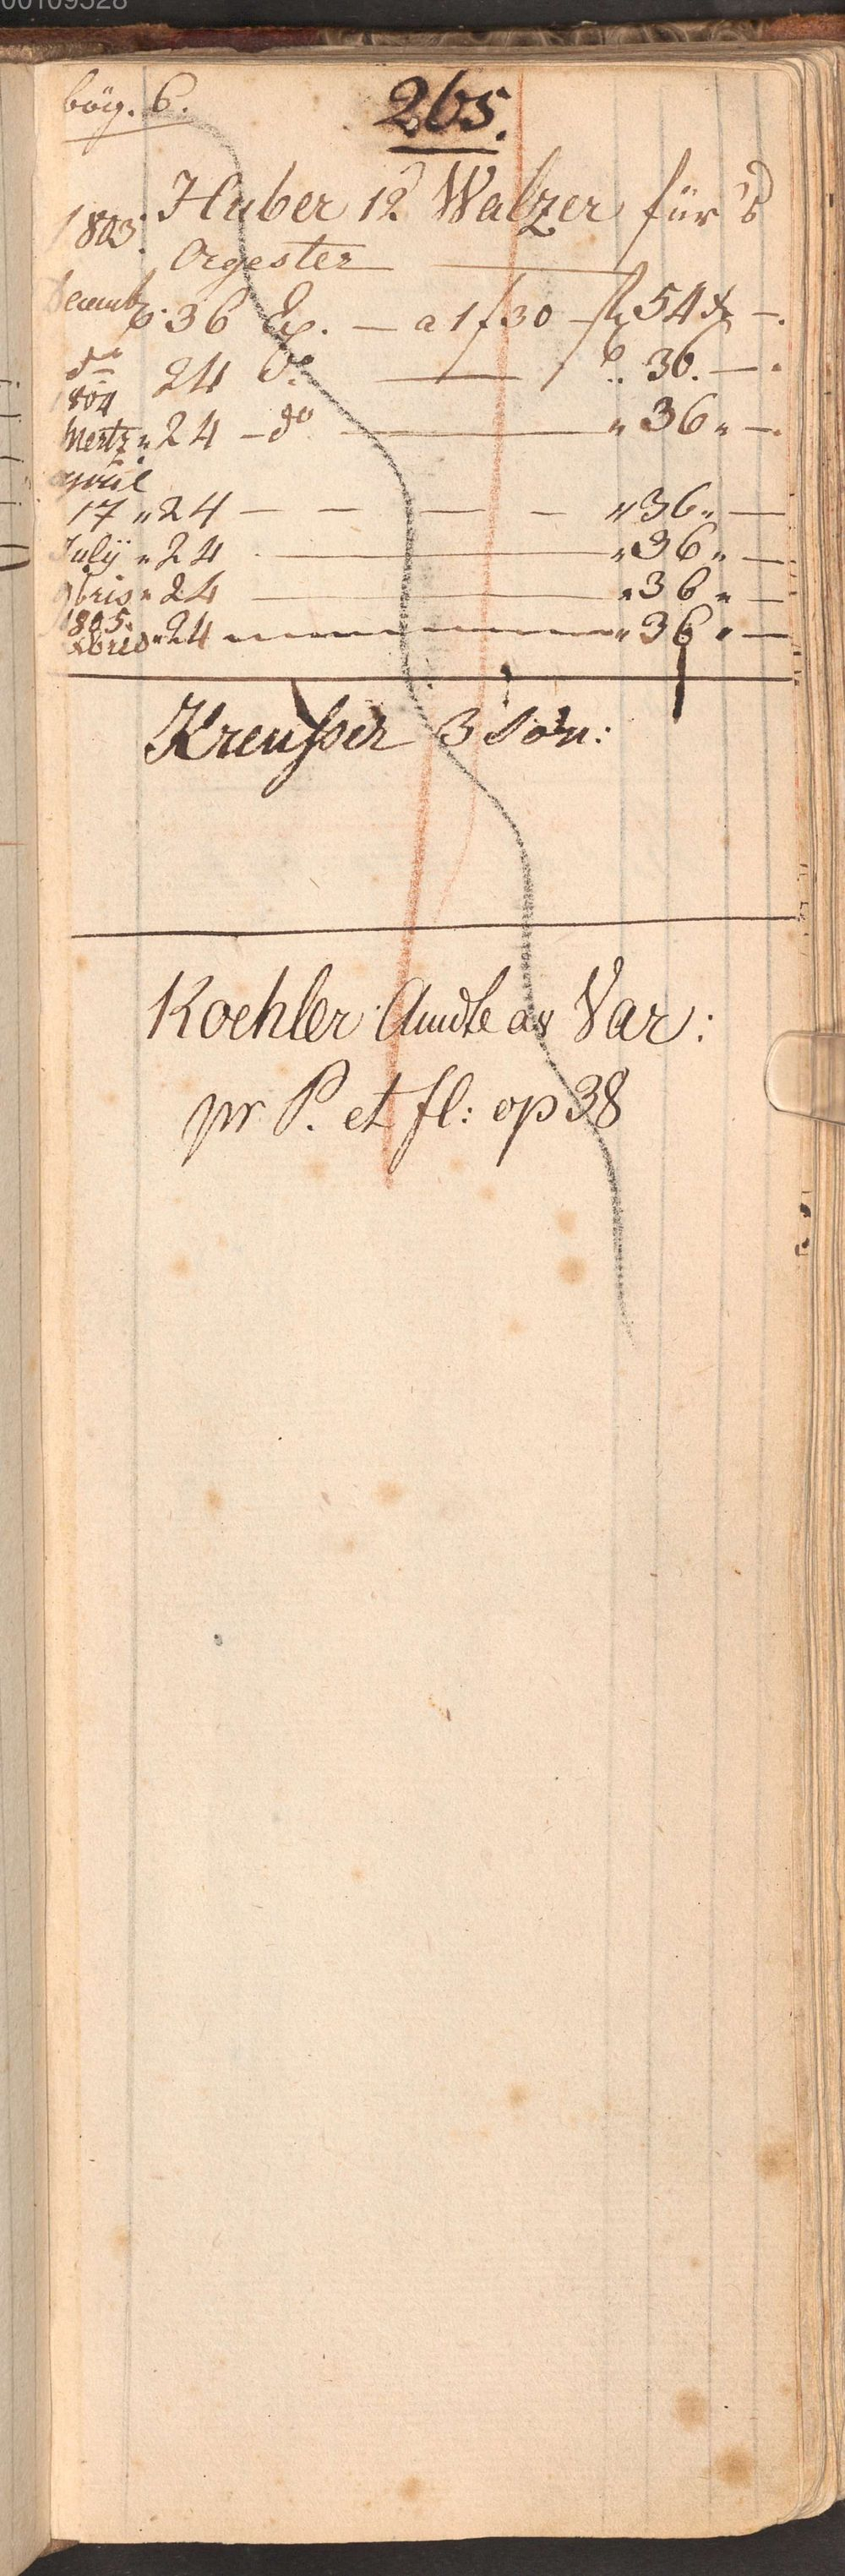 00109528
bög. 6.
265.
1803. Huber 12 Walzer für's
Orgester
Decemb. 6. 36 Ex. — a 1 f 30 — fl 54 x —.
do 24 do — 36. —.
1804
Mertz " 24 — do — " 36 " —.
april
17 " 24 — — — — " 36 " —
Julÿ " 24 — " 36 " —
9bris " 24 — " 36 " —
1805.
Xbris " 24 — " 36 " —
Kreusser 3 Son:
Koehler Andte av Var:
pr P. et fl: op 38